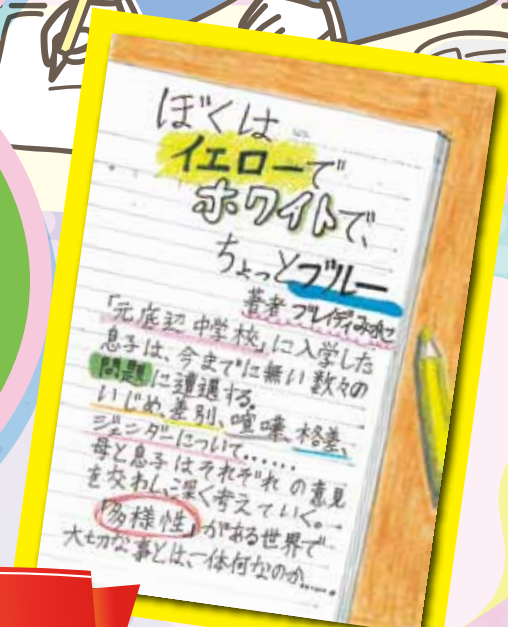 ぼくは
イエローで
ホワイトで、
ちょっとブルー
著者 ブレイディみかこ
「元底辺中学校」に入学した
息子は、今までに無い数々の
問題に遭遇する。
いじめ、差別、喧嘩、格差、
ジェンダーについて……
母と息子はそれぞれの意見
を交わし、深く考えていく。
「多様性」がある世界で
大切な事とは、一体何なのか……。